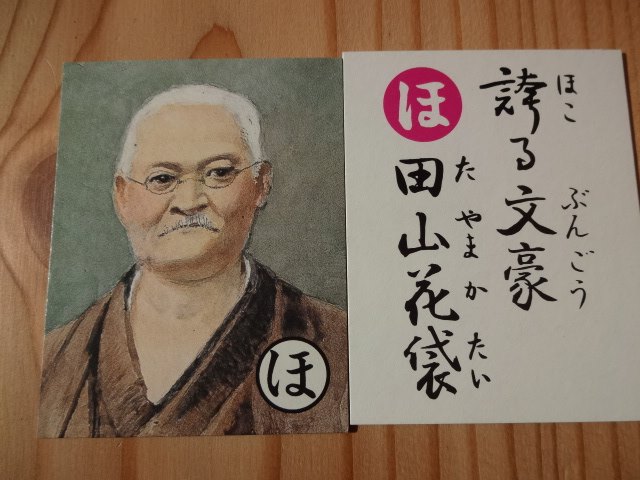 ほ
ほ
誇る文豪
ほこ ぶんごう
田山花袋
たやまかたい